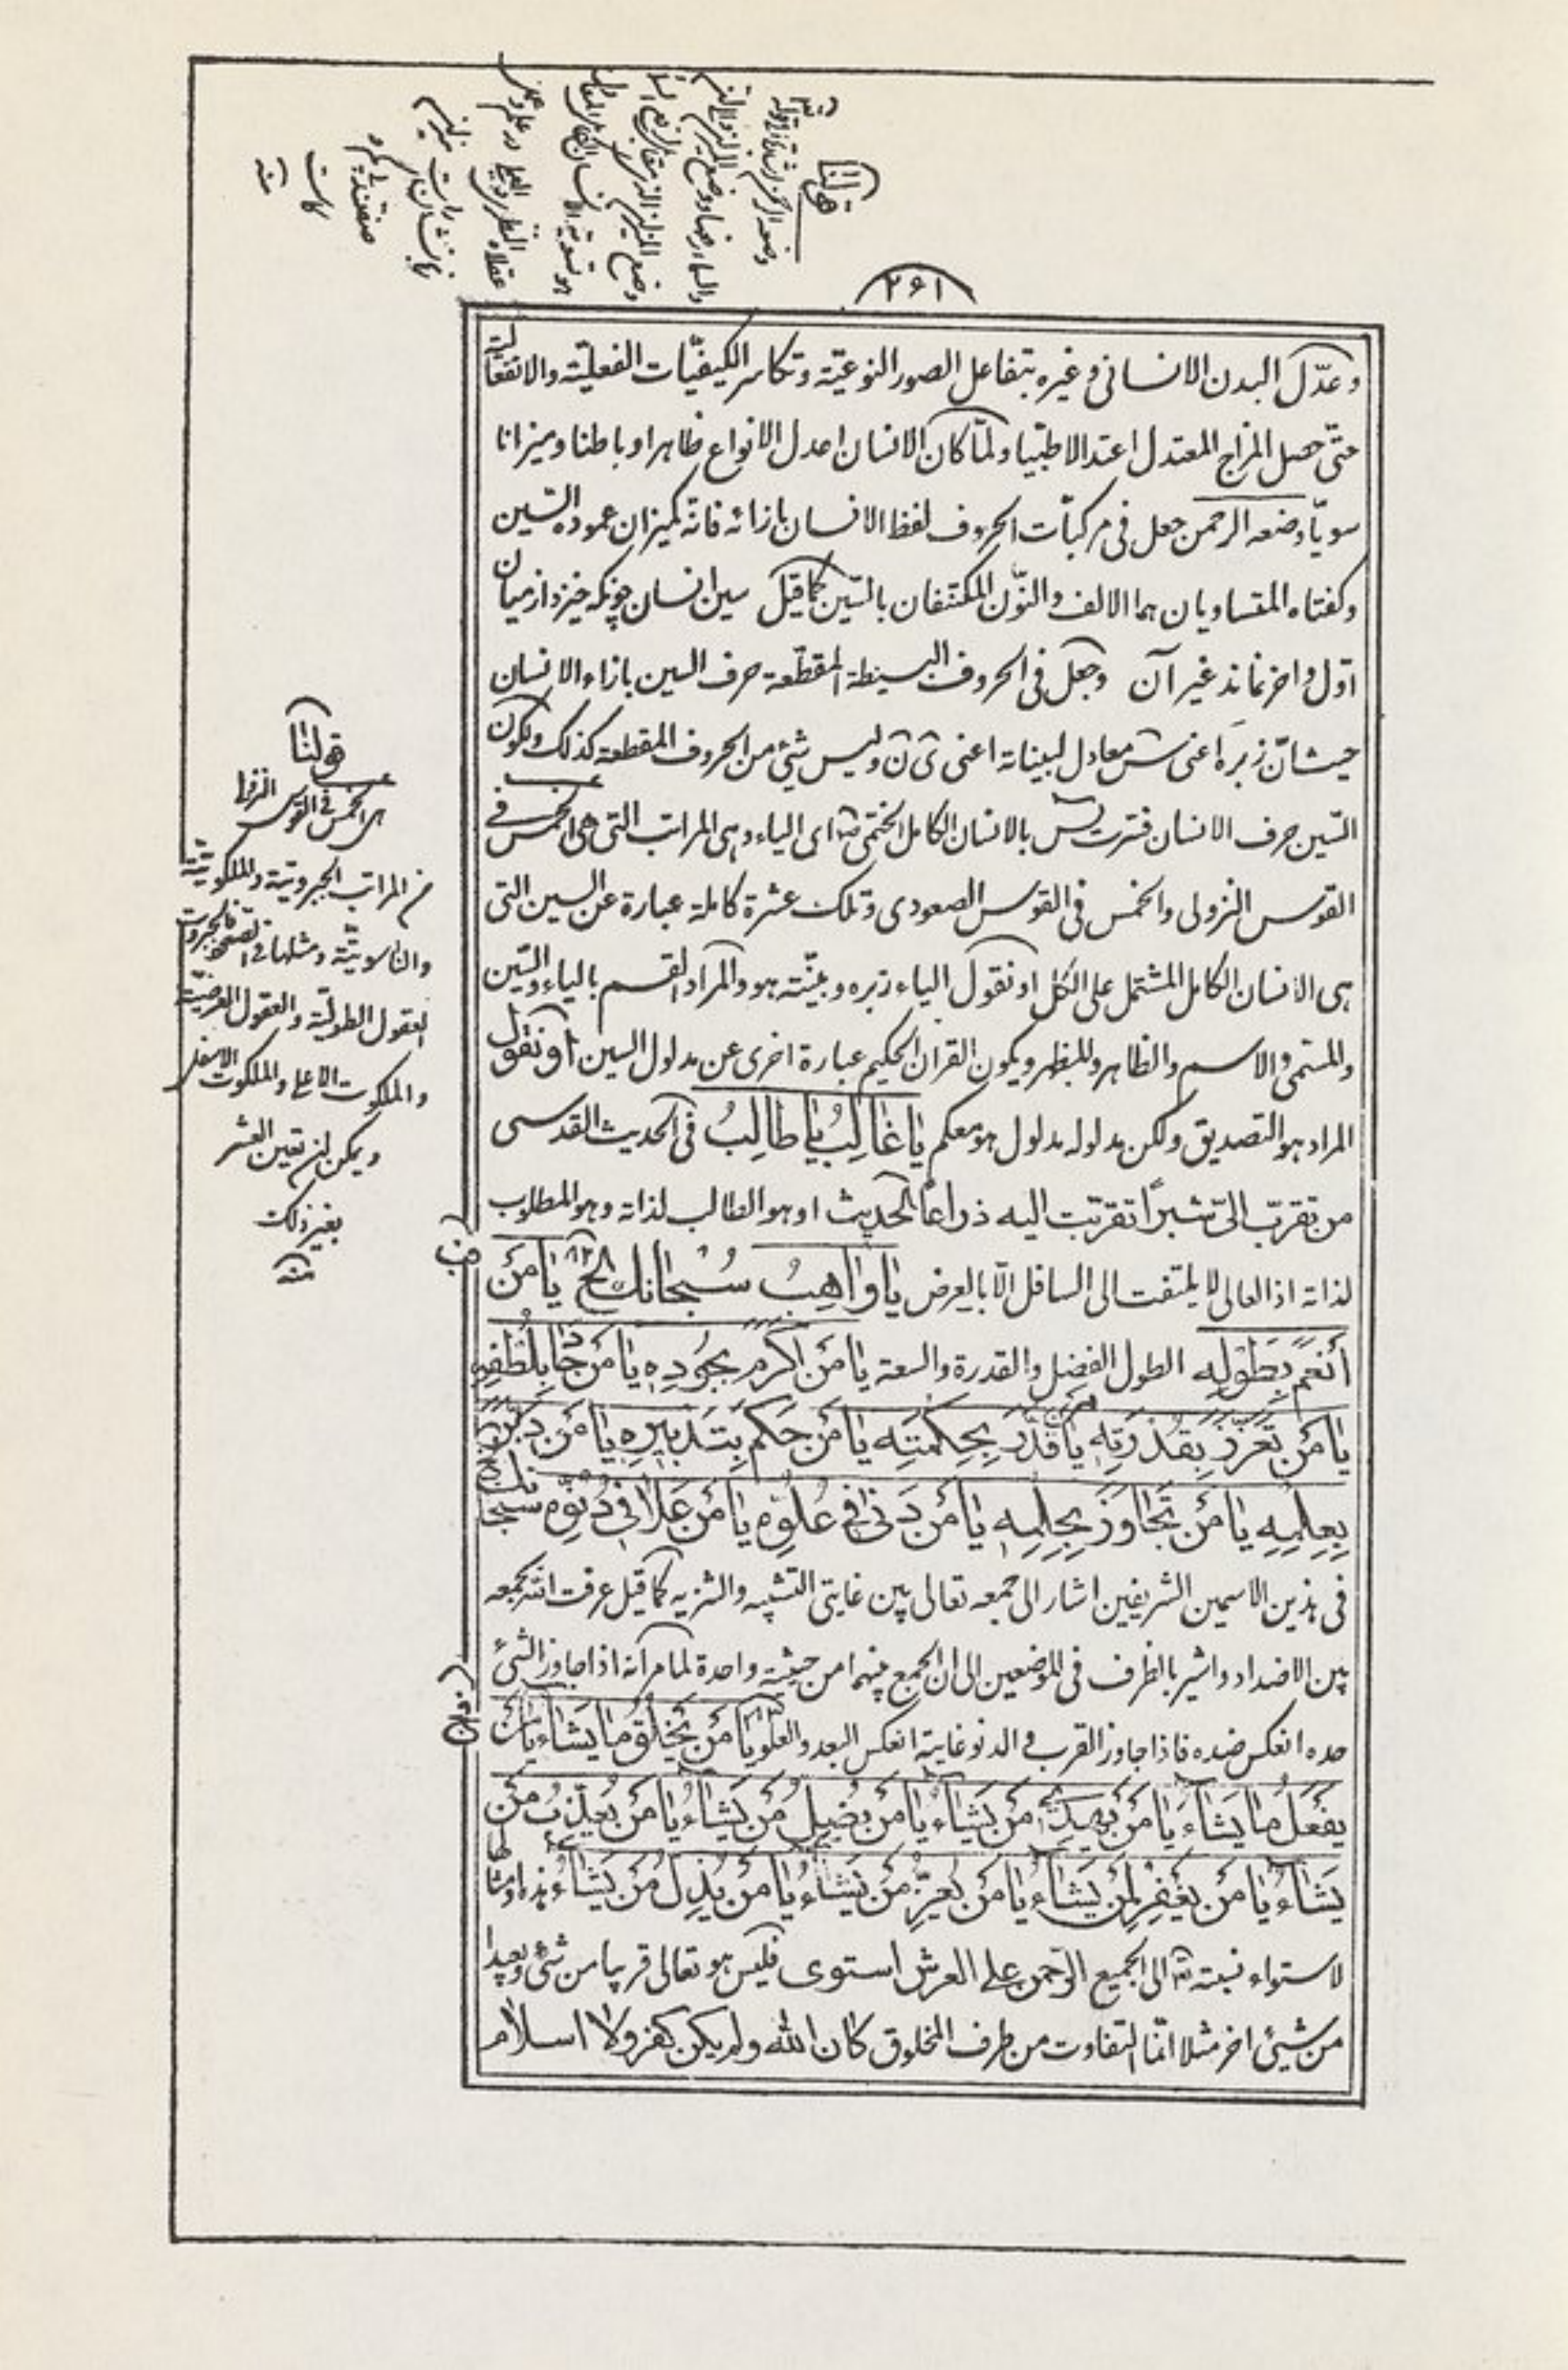 قولنا
وضعه الرحمن
٢٦١
وعدّل البدن الانسانی وغیره بتفاعل الصور النوعیّة وتکاسر الکیفیّات الفعلیّة والانفعالیّة
حتّی حصل المزاج المعتدل اعتدالا طبّیا ولمّا کان الانسان اعدل الانواع ظاهرا وباطنا ومیزانا
سویّا وضعه الرحمن جعل فی مرکبات الحروف لفظ الانسان بازائه فانه کمیزان عموده السّین
وکفتاه المتساویان هما الالف والنّون المکتنفان بالسّین کما قیل سین انسان چونکه خیزد از میان
اوّل واخر نماند غیر آن وجعل فی الحروف البسیطة المقطّعة حرف السین بازاء الانسان
حیث انّ زبره اعنی س معادل لبیناته اعنی ی ن ولیس شیٔ من الحروف المقطعة کذلک ولکون
السّین حرف الانسان فسّرت یس بالانسان الکامل الختمی ص ای الیاء وهی المراتب التی هی الخمس فی
القوس النزولی والخمس فی القوس الصعودی وتلک عشرة کاملة عبارة عن السین التی
هی الانسان الکامل المشتمل علی الکل او نقول الیاء زبره وبیّنته هو والمراد القسم بالیاء والسّین
والمسمّی والاسم والظاهر والمظهر ویکون القران الحکیم عبارة اخری عن مدلول السین او نقول
المراد هو التصدیق ولکن مدلوله مدلول هو معکم یا غالِبُ یا طالِبُ فی الحدیث القدسی
من تقرّب الیّ شبرًا تقرّبت الیه ذراعًا الحدیث او هو الطالب لذاته وهو المطلوب
لذاته اذ العالی لا یلتفت الی السافل الّا بالعرض یا واهِبُ سُبْحانَکَ الخ یا مَنْ
أنْعَمَ بِطَوْلِهِ الطول الفضل والقدرة والسعة یا مَنْ اکْرَمَ بِجُودِهِ یا مَنْ جادَ بِلُطْفِهِ
یا مَنْ تَعَزَّزَ بِقُدْرَتِهِ یا مَنْ قَدَّرَ بِحِکْمَتِهِ یا مَنْ حَکَمَ بِتَدْبیرِهِ یا مَنْ دَبَّرَ
بِعِلْمِهِ یا مَنْ تَجاوَزَ بِحِلْمِهِ یا مَنْ دَنی فی عُلُوِّهِ یا مَنْ عَلا فی دُنُوِّهِ سبحانک
فی هذین الاسمین الشریفین اشار الی جمعه تعالی بین غایتی التشبیه والتنزیه کما قیل عرفت الله بجمعه
بین الاضداد واشیر بالظرف فی الموضعین الی ان الجمع بینهما من حیثیة واحدة لما مر انه اذا جاوز الشیٔ
حده انعکس ضده فاذا جاوز القرب والدنو غایته انعکس البعد والعلو یا مَنْ یَخْلُقُ ما یَشاءُ یا مَنْ
یَفْعَلُ ما یَشاءُ یا مَنْ یَهْدی مَنْ یَشاءُ یا مَنْ یُضِلُّ مَنْ یَشاءُ یا مَنْ یُعَذِّبُ مَنْ
یَشاءُ یا مَنْ یَغْفِرُ لِمَنْ یَشاءُ یا مَنْ یُعِزُّ مَنْ یَشاءُ یا مَنْ یُذِلُّ مَنْ یَشاءُ هذه وامثالها
لاستواء نسبته تع الی الجمیع الرّحمن علی العرش استوی فلیس هو تعالی قریبا من شیٔ وبعیدا
من شیٔ اخر مثلا انّما التفاوت من طرف المخلوق کان الله ولم یکن کفر ولا اسلام
قولنا
هی الخمس فی القوس النزولی
من المراتب الجبروتیّة والملکوتیّة
والناسوتیّة ومثلها فی
العقول الطولیّة والعقول العرضیّة
والملکوت الاعلی والملکوت الاسفل
ویمکن ان تعین العشر
بغیر ذلک
منه